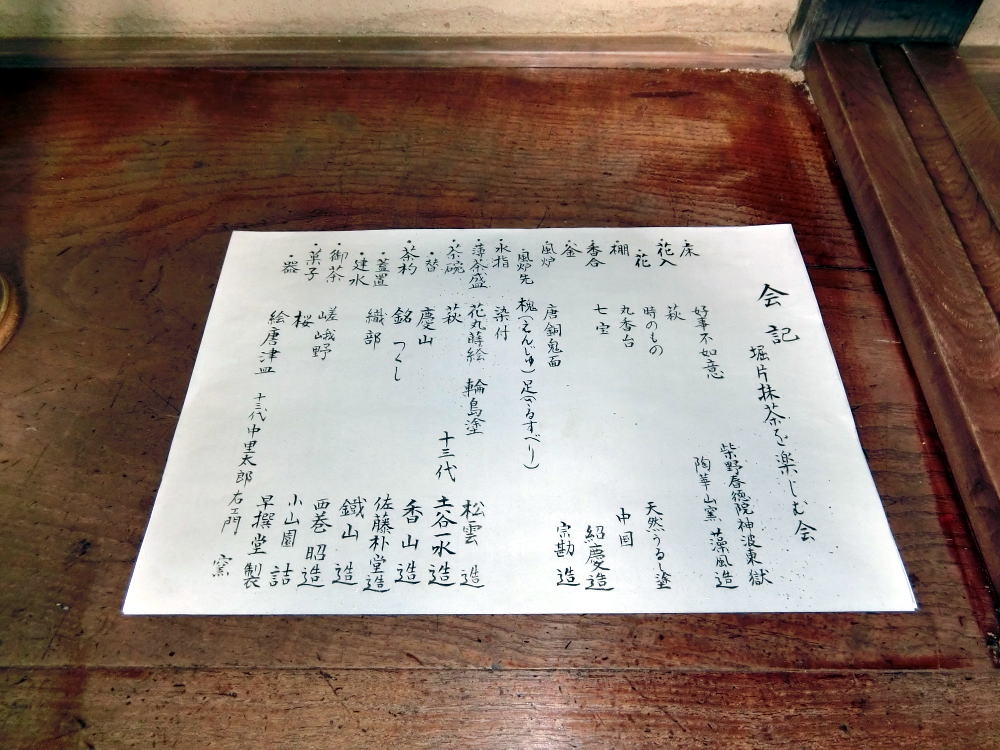 会記
堀片抹茶を楽しむ会
・床 好事不如意 柴野春徳院神波東嶽
・花入 萩 陶華山窯 藻風造
・花 時のもの
・棚 丸香台 天然うるし塗
・香合 七宝 中国
・釜 紹慶造
・風炉 唐銅鬼面 宗勘造
・風炉先 槐(えんじゅ)足(さるすべり)
・水指 染付
・薄茶盛 花丸蒔絵 輪島塗 松雲造
・茶碗 萩 十三代 土谷一水造
・替 慶山 香山造
・茶杓 銘 つくし 佐藤朴堂造
・蓋置 織部 鐵山造
・建水 西巻昭造
・御茶 嵯峨野 小山園詰
・菓子 桜 早撰堂製
・器 絵唐津皿 十三代中里太郎右エ門 窯